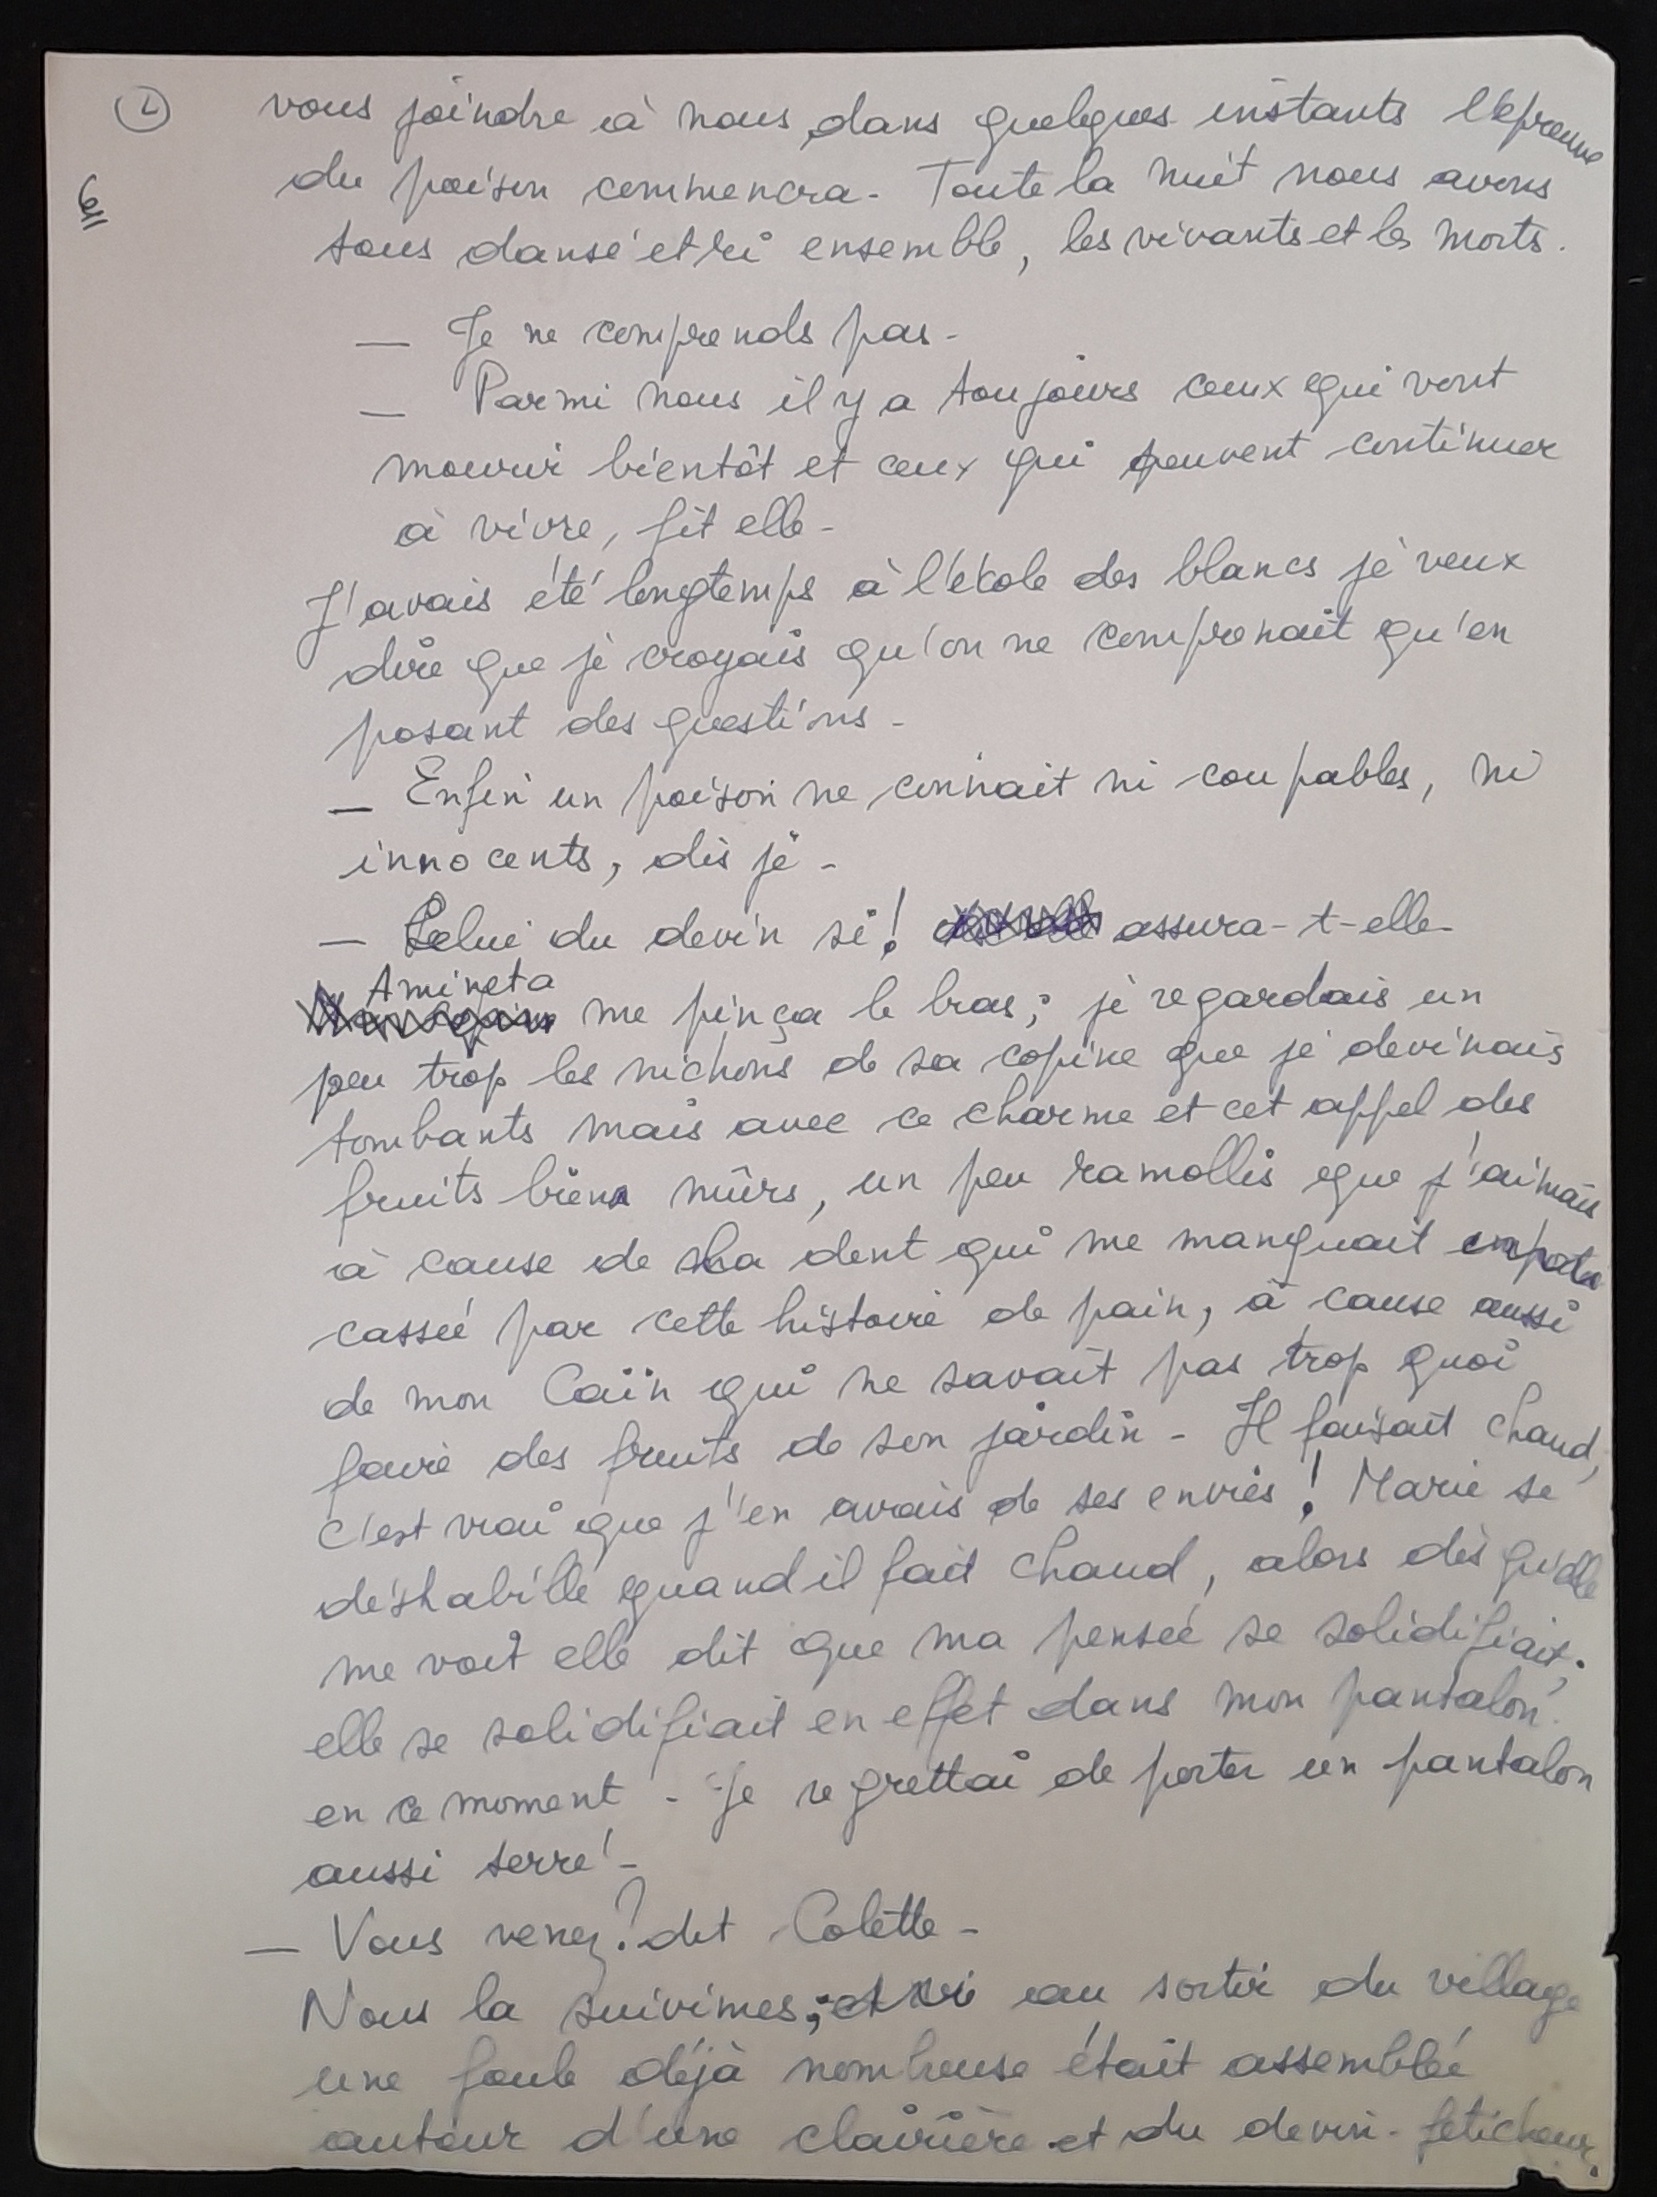 ② vous joindre à nous, dans quelques instants l'épreuve
6 du poison commencra - Toute la nuit nous avons
tous dansé et ri ensemble, les vivants et les morts.
— Je ne comprends pas -
— Parmi nous il y a toujours ceux qui vont
mourir bientôt et ceux qui peuvent continuer
à vivre, fit elle -
J'avais été longtemps à l'école des blancs je veux
dire que je croyais qu'on ne comprenait qu'en
posant des questions -
— Enfin un poison ne connait ni coupables, ni
innocents, dis je -
— Celui du devin si! assura-t-elle -
Amineta
me pinça le bras; je regardais un
peu trop les nichons de sa copine que je devinais
tombants mais avec ce charme et cet appel des
fruits biens mûrs, un peu ramollis que j'aimais
à cause de la dent qui me manquait
cassée par cette histoire de pain, à cause aussi
de mon Caïn qui ne savait pas trop quoi
faire des fruits de son jardin - Il faisait chaud,
c'est vrai que j'en avais de ses envies! Marie se
déshabille quand il fait chaud, alors dès qu'elle
me voit elle dit que ma pensée se solidifiait;
elle se solidifiait en effet dans mon pantalon.
en ce moment - Je regrettai de porter un pantalon
aussi serré -
— Vous venez? dit Colette -
Nous la suivimes; au sortir du village
une foule déjà nombreuse était assemblée
autour d'une clairière et du devin-feticheur.